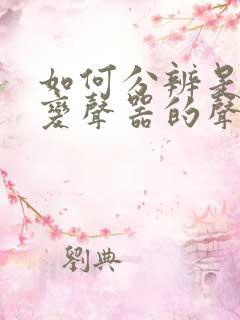 如何分辨是
變聲器的聲
劉典